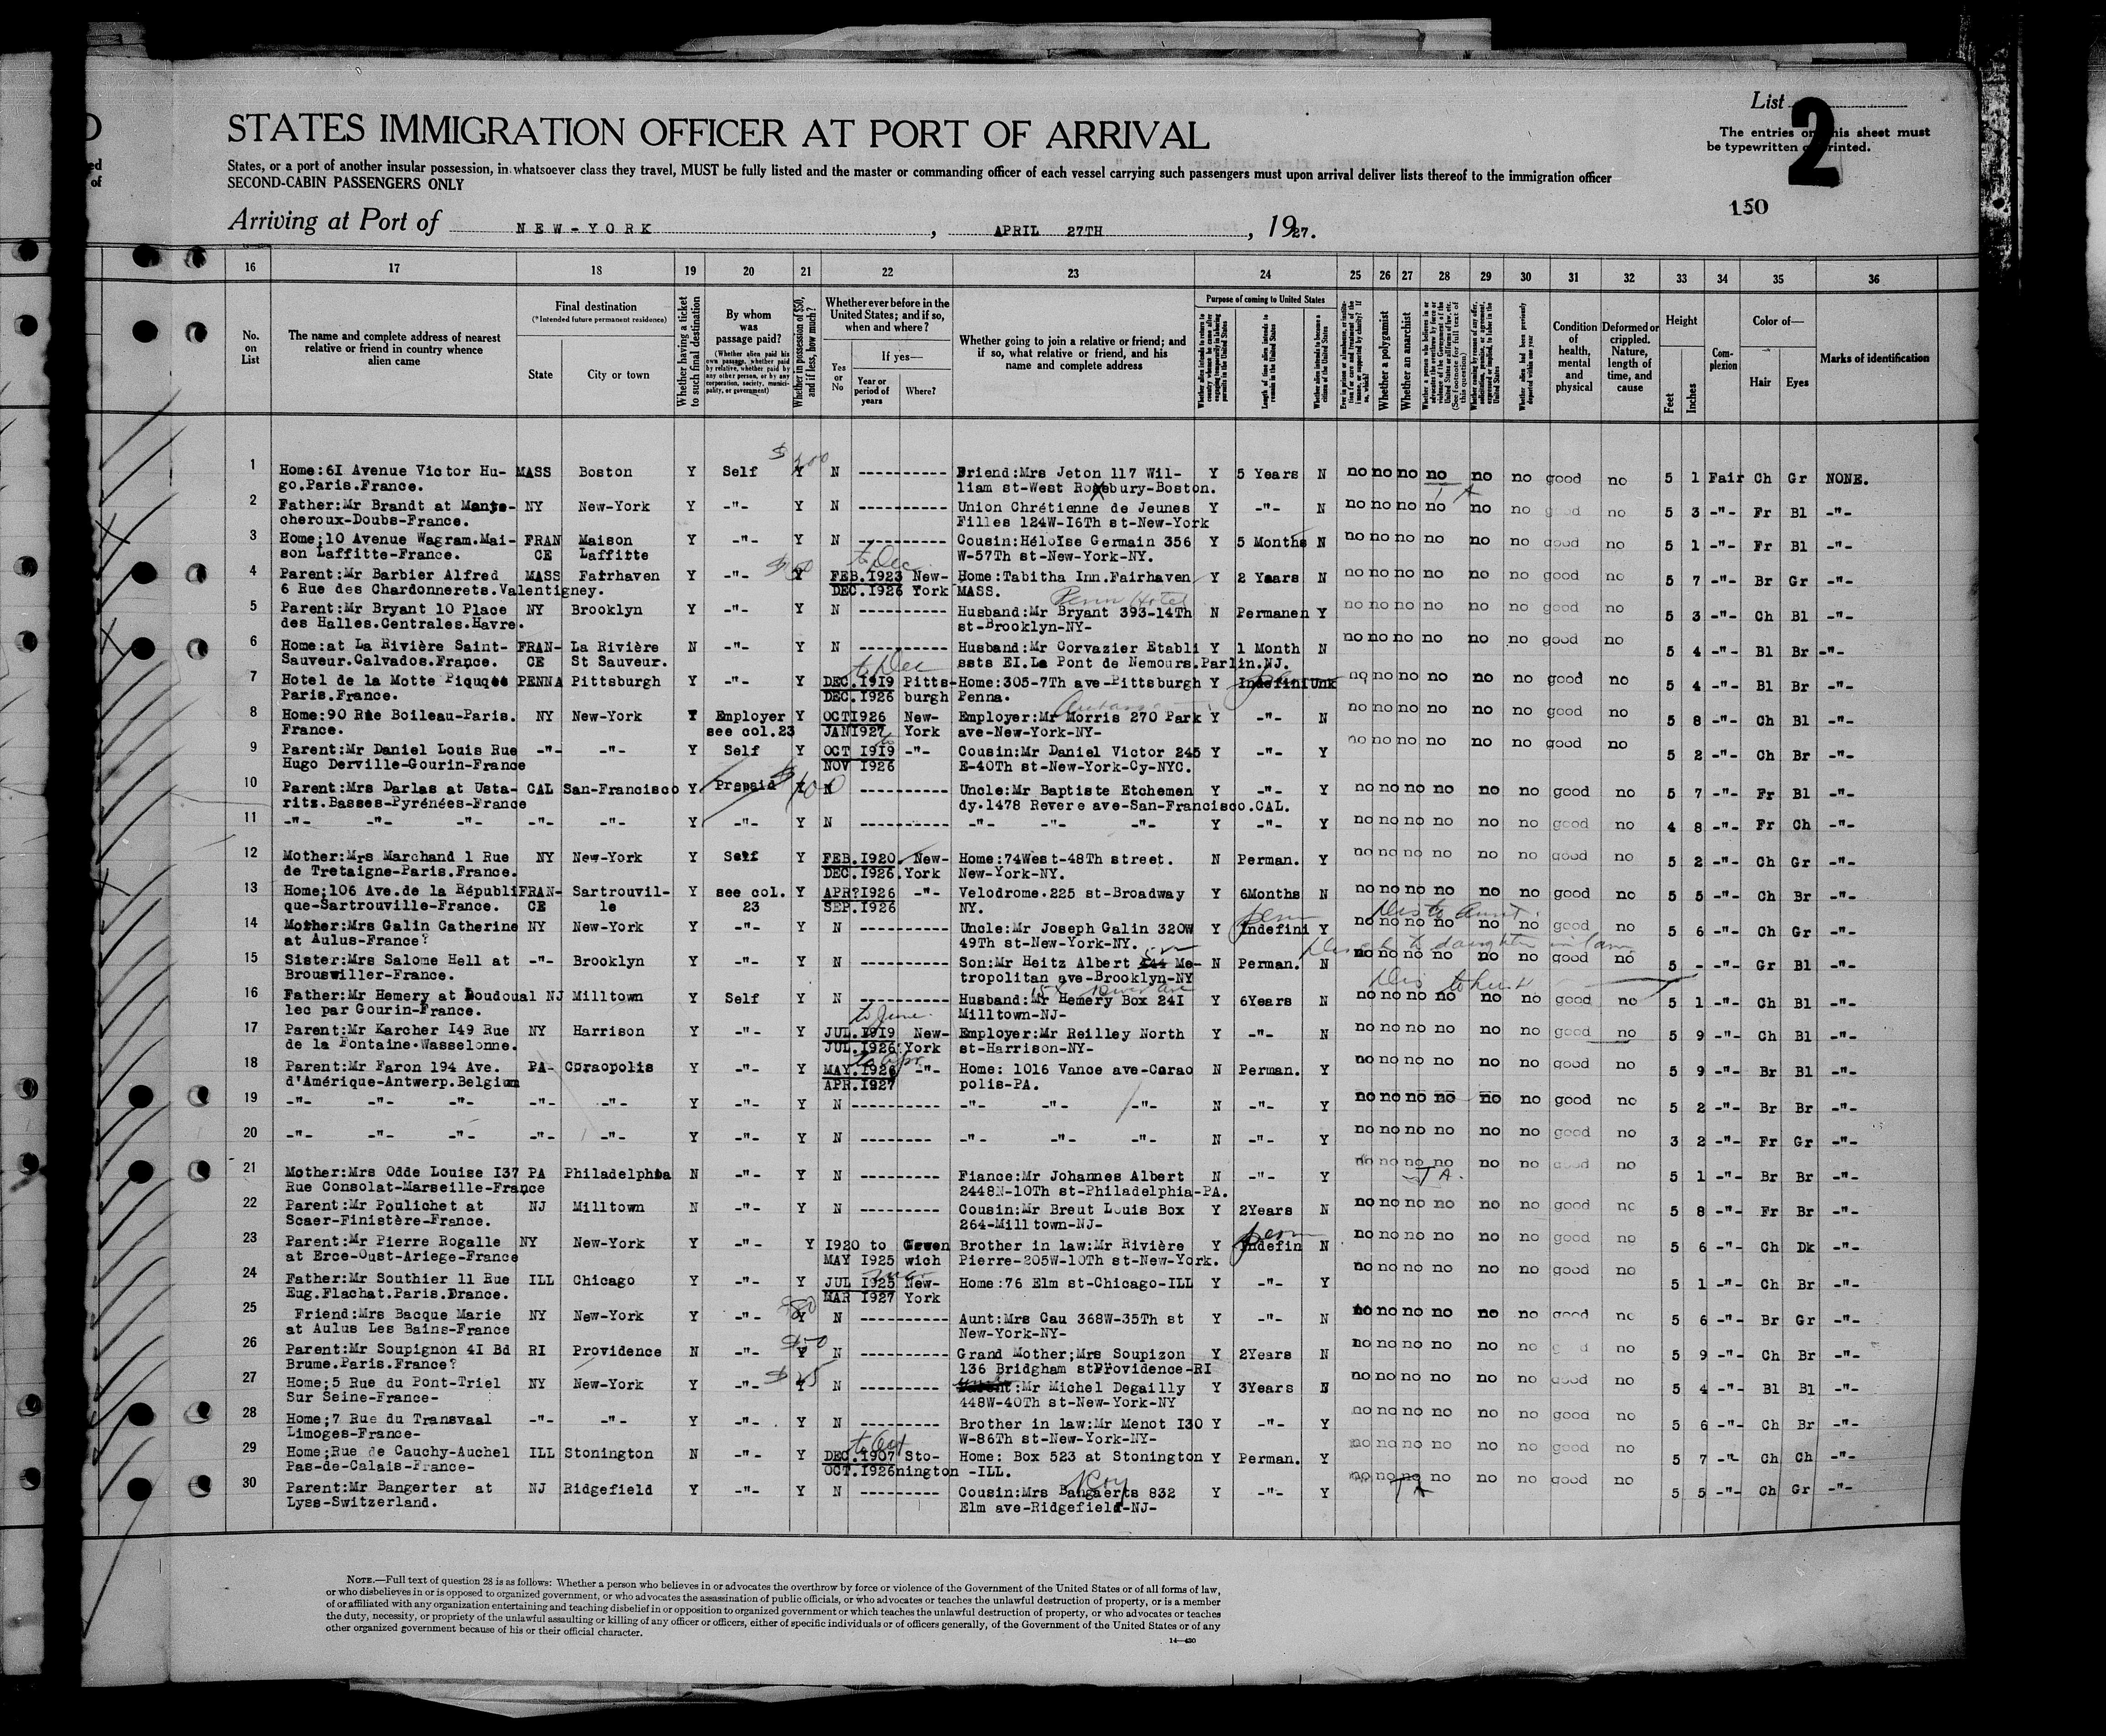 List 2
The entries on this sheet must
be typewritten or printed.
150
STATES IMMIGRATION OFFICER AT PORT OF ARRIVAL
States, or a port of another insular possession, in whatsoever class they travel, MUST be fully listed and the master or commanding officer of each vessel carrying such passengers must upon arrival deliver lists thereof to the immigration officer
SECOND-CABIN PASSENGERS ONLY
Arriving at Port of NEW-YORK, APRIL 27TH, 1927.
16 17 18 19 20 21 22 23 24 25 26 27 28 29 30 31 32 33 34 35 36
No. on List
The name and complete address of nearest relative or friend in country whence alien came
Final destination (*Intended future permanent residence)
State
City or town
Whether having a ticket to such final destination
By whom was passage paid?
(Whether alien paid his own passage, whether paid by relative, whether paid by any other person, or by any corporation, society, municipality, or government)
Whether in possession of $50, and if less, how much?
Whether ever before in the United States; and if so, when and where?
Yes or No
If yes—
Year or period of years
Where?
Whether going to join a relative or friend; and if so, what relative or friend, and his name and complete address
Purpose of coming to United States
Length of time alien intends to remain in the United States
Whether alien intends to become a citizen of the United States
Whether a polygamist
Whether an anarchist
Condition of health, mental and physical
Deformed or crippled. Nature, length of time, and cause
Height
Feet
Inches
Complexion
Color of—
Hair
Eyes
Marks of identification
1 Home:6I Avenue Victor Hu- MASS Boston Y Self Y N ---------- Friend:Mrs Jeton 117 Wil- Y 5 Years N no no no no no no good no 5 1 Fair Ch Gr NONE.
go.Paris.France. liam st-West Roxebury-Boston.
2 Father:Mr Brandt at NY New-York Y -"- Y N ---------- Union Chrétienne de Jeunes Y -"- N no no no no no no good no 5 3 -"- Fr Bl -"-
cheroux-Doubs-France. Filles 124W-I6Th st-New-York
3 Home;10 Avenue Wagram.Mai- FRAN Maison Y -"- Y N ---------- Cousin:Héloïse Germain 356 Y 5 Months N no no no no no no good no 5 1 -"- Fr Bl -"-
son Laffitte-France. CE Laffitte W-57Th st-New-York-NY.
4 Parent:Mr Barbier Alfred MASS Fairhaven Y -"- FEB.I923 New- Home:Tabitha Inn.Fairhaven Y 2 Years N no no no no no no good no 5 7 -"- Br Gr -"-
6 Rue des Chardonnerets.Valentigney. DEC.I926 York MASS.
5 Parent:Mr Bryant 10 Place NY Brooklyn Y -"- Y N ---------- Husband:Mr Bryant 393-14Th N Permanen Y no no no no no no good no 5 3 -"- Ch Bl -"-
des Halles.Centrales.Havre. st-Brooklyn-NY-
6 Home:at La Rivière Saint- FRAN- La Rivière N -"- Y N ---------- Husband:Mr Corvazier Etabli Y 1 Month N no no no no no no good no 5 4 -"- Bl Br -"-
Sauveur.Calvados.France. CE St Sauveur. ssts EI.La Pont de Nemours.Parlin.NJ.
7 Hotel de la Motte Piquqet PENNA Pittsburgh Y -"- Y DEC.I9I9 Pitts- Home:305-7Th ave-Pittsburgh Y Indefini Unk no no no no no no good no 5 4 -"- Bl Br -"-
Paris.France. DEC.I926 burgh Penna.
8 Home:90 Rue Boileau-Paris. NY New-York Y Employer Y OCTI926 New- Employer:Mr Morris 270 Park Y -"- N no no no no no no good no 5 8 -"- Ch Bl -"-
France. see col.23 JANI927 York ave-New-York-NY-
9 Parent:Mr Daniel Louis Rue -"- -"- Y Self Y OCT I9I9 -"- Cousin:Mr Daniel Victor 245 Y -"- Y no no no no no no good no 5 2 -"- Ch Br -"-
Hugo Derville-Gourin-France NOV I926 E-40Th st-New-York-Cy-NYC.
10 Parent:Mrs Darlas at Usta- CAL San-Francisco Y Prepaid $100 Y N ---------- Uncle:Mr Baptiste Etchemen Y -"- Y no no no no no no good no 5 7 -"- Fr Bl -"-
ritz.Basses-Pyrénées-France dy.1478 Revere ave-San-Francisco.CAL.
11 -"- -"- -"- -"- -"- Y -"- Y N ---------- -"- -"- -"- Y -"- Y no no no no no no good no 4 8 -"- Fr Ch -"-
12 Mother:Mrs Marchand 1 Rue NY New-York Y Self Y FEB.I920. New- Home:74West-48Th street. N Perman. Y no no no no no no good no 5 2 -"- Ch Gr -"-
de Tretaigne-Paris.France. DEC.I926.York New-York-NY.
13 Home;106 Ave.de la Républi FRAN- Sartrouvil- Y see col. Y APR?I926 -"- Velodrome.225 st-Broadway Y 6Months N no no no no no no good no 5 5 -"- Ch Br -"-
que-Sartrouville-France. CE le 23 SEP.I926 NY.
14 Mother:Mrs Galin Catherine NY New-York Y -"- Y N ---------- Uncle:Mr Joseph Galin 320W Y Indefini Y no no no no no no good no 5 6 -"- Ch Gr -"-
at Aulus-France? 49Th st-New-York-NY.
15 Sister:Mrs Salome Hell at -"- Brooklyn Y -"- Y N ---------- Son:Mr Heitz Albert Me- N Perman. N no no no no no no good no 5 - -"- Gr Bl -"-
Brouswiller-France. tropolitan ave-Brooklyn-NY
16 Father:Mr Hemery at Boudoual NJ Milltown Y Self Y N ---------- Husband:Mr Hemery Box 24I Y 6Years N no no no no no no good no 5 1 -"- Ch Bl -"-
lec par Gourin-France. Milltown-NJ-
17 Parent:Mr Karcher I49 Rue NY Harrison Y -"- Y JUL.I9I9 New- Employer:Mr Reilley North Y -"- N no no no no no no good no 5 9 -"- Ch Bl -"-
de la Fontaine.Wasselonne. JUL.I926 York st-Harrison-NY-
18 Parent:Mr Faron 194 Ave. PA- Coraopolis Y -"- Y MAY.I926 -"- Home: 1016 Vance ave-Corao N Perman. Y no no no no no no good no 5 9 -"- Br Bl -"-
d'Amérique-Antwerp.Belgium APR.I927 polis-PA.
19 -"- -"- -"- -"- -"- Y -"- Y N ---------- -"- -"- -"- N -"- Y no no no no no no good no 5 2 -"- Br Br -"-
20 -"- -"- -"- -"- -"- Y -"- Y N -------- -"- -"- -"- N -"- Y no no no no no no good no 3 2 -"- Fr Gr -"-
21 Mother:Mrs Odde Louise I37 PA Philadelphia N -"- Y N -------- Fiance:Mr Johannes Albert N -"- Y no no no no no no good no 5 1 -"- Br Br -"-
Rue Consolat-Marseille-France 2448N-10Th st-Philadelphia-PA.
22 Parent:Mr Poulichet at NJ Milltown N -"- Y N ---------- Cousin:Mr Breut Louis Box Y 2Years N no no no no no no good no 5 8 -"- Fr Br -"-
Scaer-Finistère-France. 264-Milltown-NJ-
23 Parent:Mr Pierre Rogalle NY New-York Y -"- Y I920 to Green Brother in law:Mr Rivière Y Indefin N no no no no no no good no 5 6 -"- Ch Dk -"-
at Erce-Oust-Ariege-France MAY I925 wich Pierre-205W-10Th st-New-York.
24 Father:Mr Southier 11 Rue ILL Chicago Y -"- Y JUL I925 New- Home:76 Elm st-Chicago-ILL Y -"- Y no no no no no no good no 5 1 -"- Ch Br -"-
Eug.Flachat.Paris.Drance. MAR I927 York
25 Friend:Mrs Bacque Marie NY New-York Y -"- Y N ---------- Aunt:Mrs Cau 368W-35Th st Y -"- N no no no no no no good no 5 6 -"- Br Gr -"-
at Aulus Les Bains-France New-York-NY-
26 Parent:Mr Soupignon 4I Bd RI Providence N -"- $50 Y N ---------- Grand Mother;Mrs Soupizon Y 2Years N no no no no no no good no 5 9 -"- Ch Br -"-
Brume.Paris.France? 136 Bridgham st Providence-RI
27 Home;5 Rue du Pont-Triel NY New-York Y -"- Y N ---------- :Mr Michel Degailly Y 3Years N no no no no no no good no 5 4 -"- Bl Bl -"-
Sur Seine-France- 448W-40Th st-New-York-NY
28 Home;7 Rue du Transvaal -"- -"- Y -"- Y N ---------- Brother in law:Mr Menot I30 Y -"- Y no no no no no no good no 5 6 -"- Ch Br -"-
Limoges-France- W-86Th st-New-York-NY-
29 Home;Rue de Cauchy-Auchel ILL Stonington N -"- Y DEC.I907 Sto- Home: Box 523 at Stonington Y Perman. Y no no no no no no good no 5 7 -"- Ch Ch -"-
Pas-de-Calais-France- OCT.I926 nington -ILL.
30 Parent:Mr Bangerter at NJ Ridgefield Y -"- Y N ---------- Cousin:Mrs Bangaerts 832 Y -"- Y no no no no no no good no 5 5 -"- Ch Gr -"-
Lyss-Switzerland. Elm ave-Ridgefield-NJ-
NOTE.—Full text of question 28 is as follows: Whether a person who believes in or advocates the overthrow by force or violence of the Government of the United States or of all forms of law,
or who disbelieves in or is opposed to organized government, or who advocates the assassination of public officials, or who advocates or teaches the unlawful destruction of property, or is a member
of or affiliated with any organization entertaining and teaching disbelief in or opposition to organized government or which teaches the unlawful destruction of property, or who advocates or teaches
the duty, necessity, or propriety of the unlawful assaulting or killing of any officer or officers, either of specific individuals or of officers generally, of the Government of the United States or of any
other organized government because of his or their official character.
14—430